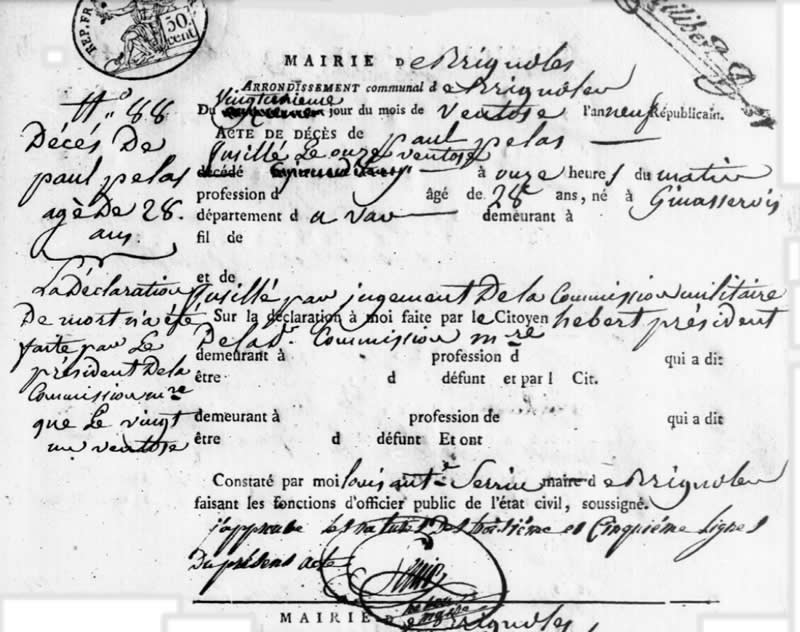 REP. FR
50
cent
MAIRIE De Brignoles
ARRONDISSEMENT communal de Brignoles
Du vingt unieme jour du mois de ventose l'an neuf Républicain.
ACTE DE DÉCÈS de paul pelas
fusillé Le onze ventose
décédé à onze heures du matin
profession d âgé de 28 ans, né à Ginasservis
département d u var demeurant à
fil de
et de
fusillé par jugement De la Commission militaire
Sur la déclaration à moi faite par le Citoyen hebert président
De la d. Commission m.re
demeurant à profession d qui a dit
être d défunt et par l Cit.
demeurant à profession de qui a dit
être d défunt Et ont
Constaté par moi louis ant.e Serrin maire de Brignoles
faisant les fonctions d'officier public de l'état civil, soussigné.
j'approuve les ratures des troisième et Cinquième lignes
Du présent acte
N.o 88
Décés De
paul pelas
agé De 28.
ans.
La Déclaration
De mort n'a été
faite par Le
président De la
Commission m.re
que Le vingt
un ventose
maire
MAIRIE De Brignoles